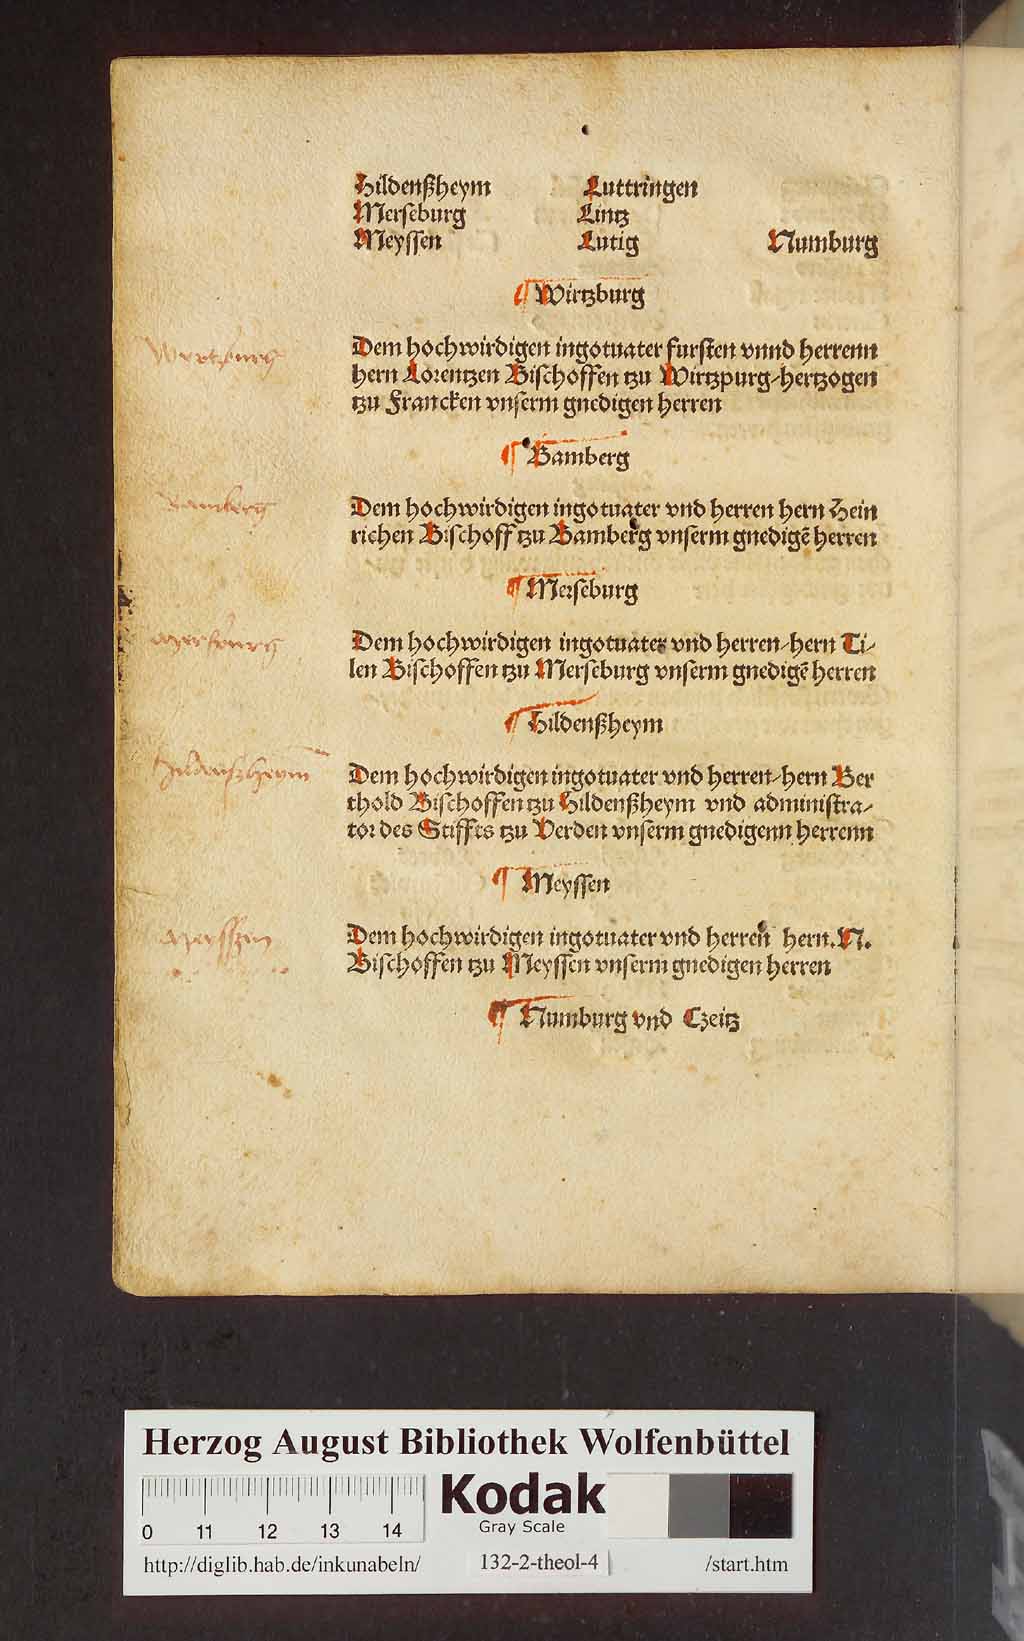 Hildenßheym Luttringen
Merseburg Lintz
Meyssen Lutig Numburg
¶ Wirtzburg
Wertzburg
Dem hochwirdigen ingotuater fursten vnnd herrenn
hern Lorentzen Bischoffen tzu Wirtzpurg-hertzogen
tzu Francken vnserm gnedigen herren
¶ Bamberg
Bamberg
Dem hochwirdigen ingotuater vnd herren hern Hein
richen Bischoff tzu Bamberg vnserm gnedigē herren
¶ Merseburg
Merseburg
Dem hochwirdigen ingotuater vnd herren-hern Ti-
len Bischoffen tzu Merseburg vnserm gnedigē herren
¶ Hildenßheym
Dem hochwirdigen ingotuater vnd herren-hern Ber
thold Bischoffen tzu Hildenßheym vnd administra-
tor des Stiffts tzu Verden vnserm gnedigenn herrenn
¶ Meyssen
Dem hochwirdigen ingotuater vnd herren hern. N.
Bischoffen tzu Meyssen vnserm gnedigen herren
¶ Numburg vnd Czeitz
Herzog August Bibliothek Wolfenbüttel
Kodak
Gray Scale
0 11 12 13 14
http://diglib.hab.de/inkunabeln/ 132-2-theol-4 /start.htm